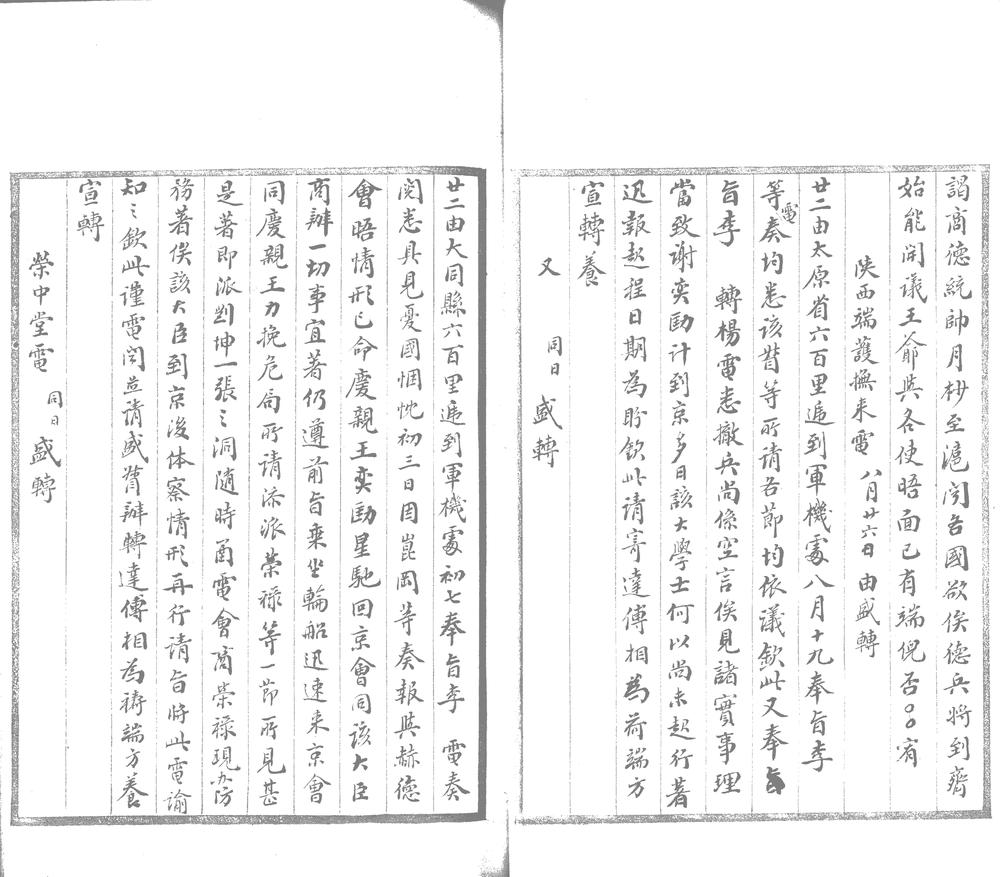 謁商德統帥月杪至滬聞各國欲俟德兵将到齊
始能開議王爺與各使晤面已有端倪否〇〇宥
陝西端護撫来電 八月廿六日 由盛轉
廿二由太原省六百里遞到軍機處八月十九奉旨李
等電奏均悉該督等所请各節均依議欽此又奉旨
旨李 轉楊電悉撤兵尚係空言俟見諸實事理
當致谢奕劻计到京多日該大學士何以尚未起行著
迅報起程日期為盼欽此请寄達傅相為荷端方
宣轉養
又 同日 盛轉
廿二由大同縣六百里遞到軍機處初七奉旨李 電奏
閱悉具見憂國悃忱初三日因崑岡等奏報與赫德
會晤情形已命慶親王奕劻星馳回京會同該大臣
商辦一切事宜著仍遵前旨乗坐輪船迅速来京會
同慶親王力挽危局所请添派榮禄等一節所見甚
是著即派劉坤一張之洞随時函電會商榮禄現办防
務著俟該大臣到京後体察情形再行请旨将此電谕
知之欽此謹電聞並请盛督辦轉達傅相為祷端方養
宣轉
榮中堂電 同日 盛轉